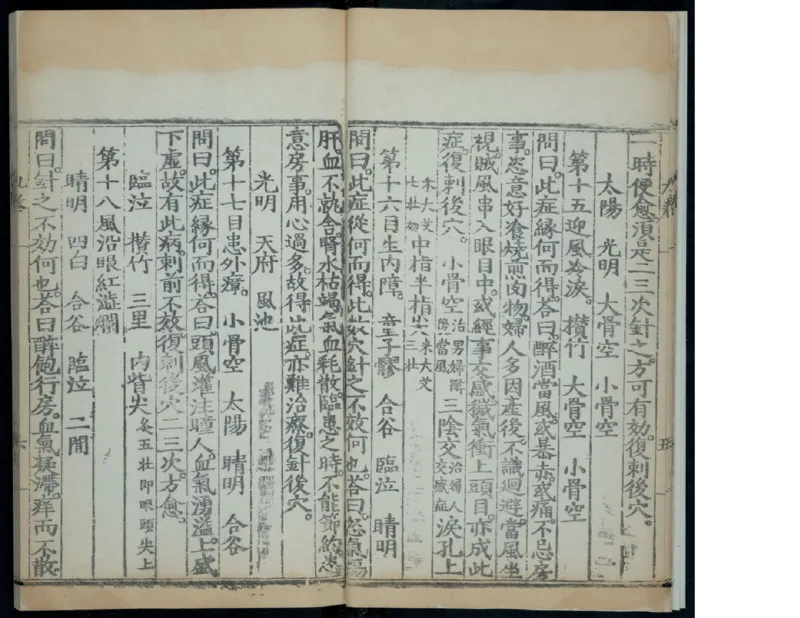 一時便愈須是二三次針之方可有効復刺後穴。
太陽 光明 大骨空 小骨空
第十五迎風冷淚。 攢竹 大骨空 小骨空
問曰。此症緣何而得。荅曰。醉酒當風。或暴赤。或痛。不忌房
事。恣意好飡燒煎肉物。婦人多因產後。不識迴避。當風坐
視。賊風串入眼目中。或經事交感。穢氣衝上頭目。亦成此
症。復刺後穴。 小骨空治男婦斷僽當風 三陰交治婦人交感症 淚孔上
米大艾七壯如 中指半指尖米大艾三壯
第十六目生内障。 童子髎 合谷 臨泣 睛明
問曰。此症從何而得。此穴針之不效何也。荅曰。怒氣傷
肝。血不就舍。腎水枯竭。氣血耗散。臨患之時。不能節約恣
意房事。用心過多。故得此症。亦難治療。復針後穴。
光明 天府 風池
第十七目患外瘴。 小骨空 太陽 睛明 合谷
問曰。此症緣何而得。荅曰。頭風灌注瞳人。血氣湧溢。上盛
下虛。故有此病。刺前不效。復刺後穴二三次。方愈。
臨泣 攢竹 三里 内眥尖灸五壯即眼頭尖上
第十八風沿眼紅澁爛
睛明 四白 合谷 臨泣 二間
問曰。針之不効何也。荅曰。醉飽行房。血氣凝滯。痒而不散